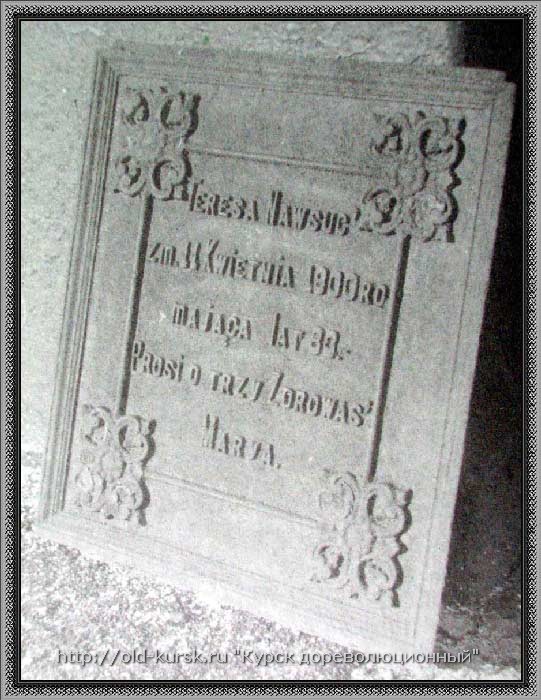 TERESA NAWSUĆ
zm. 11 KWIETNIA 1900 RO
MAJĄCA LAT 83.-
PROSI O TRZY ZDROWAŚ
MARYA.
http://old-kursk.ru "Курск дореволюционный"